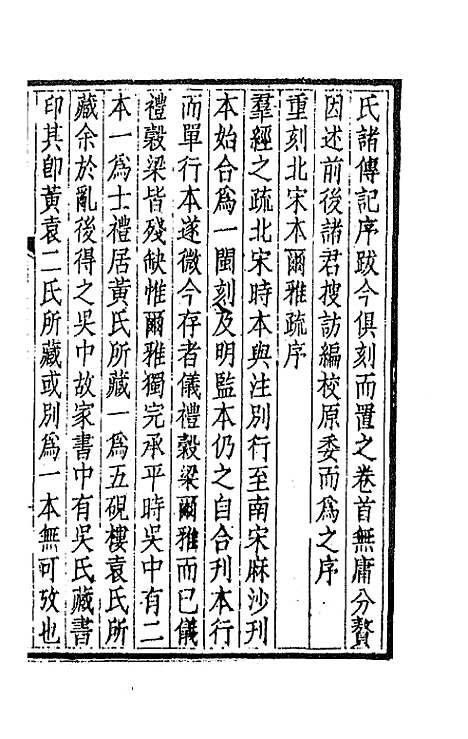 氏諸傳記序跋今俱刻而置之卷首無庸分贅
因述前後諸君搜訪編校原委而爲之序
重刻北宋本爾雅疏序
羣經之疏北宋時本與注別行至南宋麻沙刊
本始合爲一閩刻及明監本仍之自合刊本行
而單行本遂微今存者儀禮穀梁爾雅而已儀
禮穀梁皆殘缺惟爾雅獨完承平時吳中有二
本一爲士禮居黃氏所藏一爲五硯樓袁氏所
藏余於亂後得之吳中故家書中有吳氏藏書
印其卽黃袁二氏所藏或別爲一本無可攷也